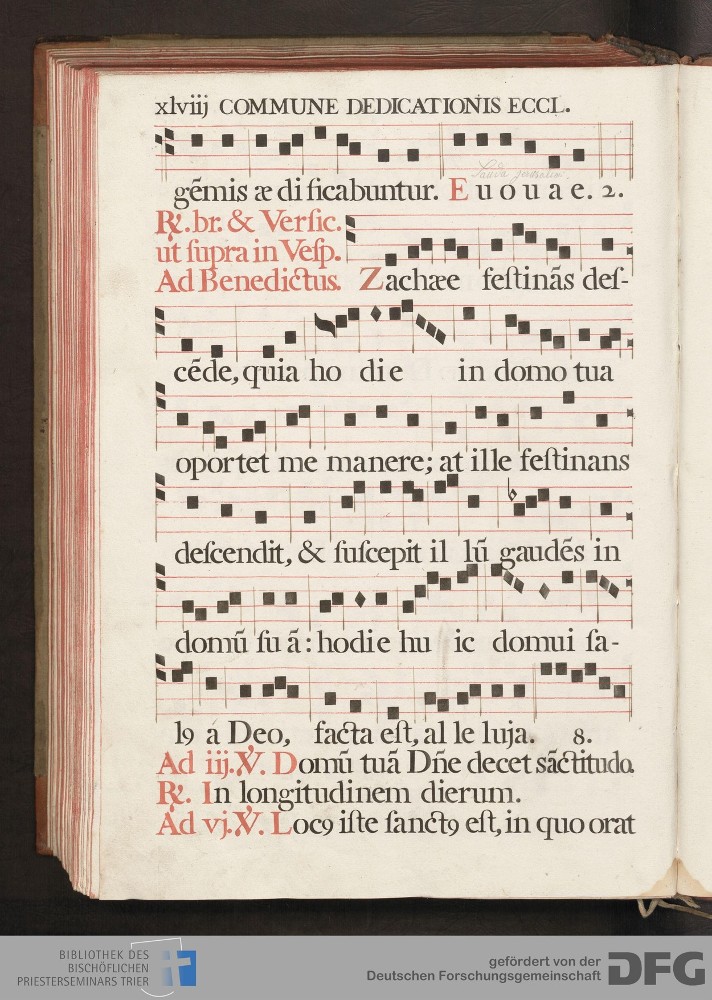 xlviij COMMUNE DEDICATIONIS ECCL.
gẽmis æ di ficabuntur. E u o u a e. 2.
℟.br. & Verſic.
ut ſupra in Veſp.
Ad Benedictus. Zachæe feſtinãs deſ-
cẽde, quia ho die in domo tua
oportet me manere; at ille feſtinans
deſcendit, & ſuſcepit il lũ gaudẽs in
domũ ſu ã: hodie hu ic domui ſa-
lꝯ a Deo, facta eſt, al le luja. 8.
Ad iij. ℣. Domũ tuã Dñe decet sãctitudo.
℟. In longitudinem dierum.
Ad vj. ℣. Locꝯ iſte ſanctꝯ eſt, in quo orat
BIBLIOTHEK DES
BISCHÖFLICHEN
PRIESTERSEMINARS TRIER
gefördert von der
Deutschen Forschungsgemeinschaft
DFG